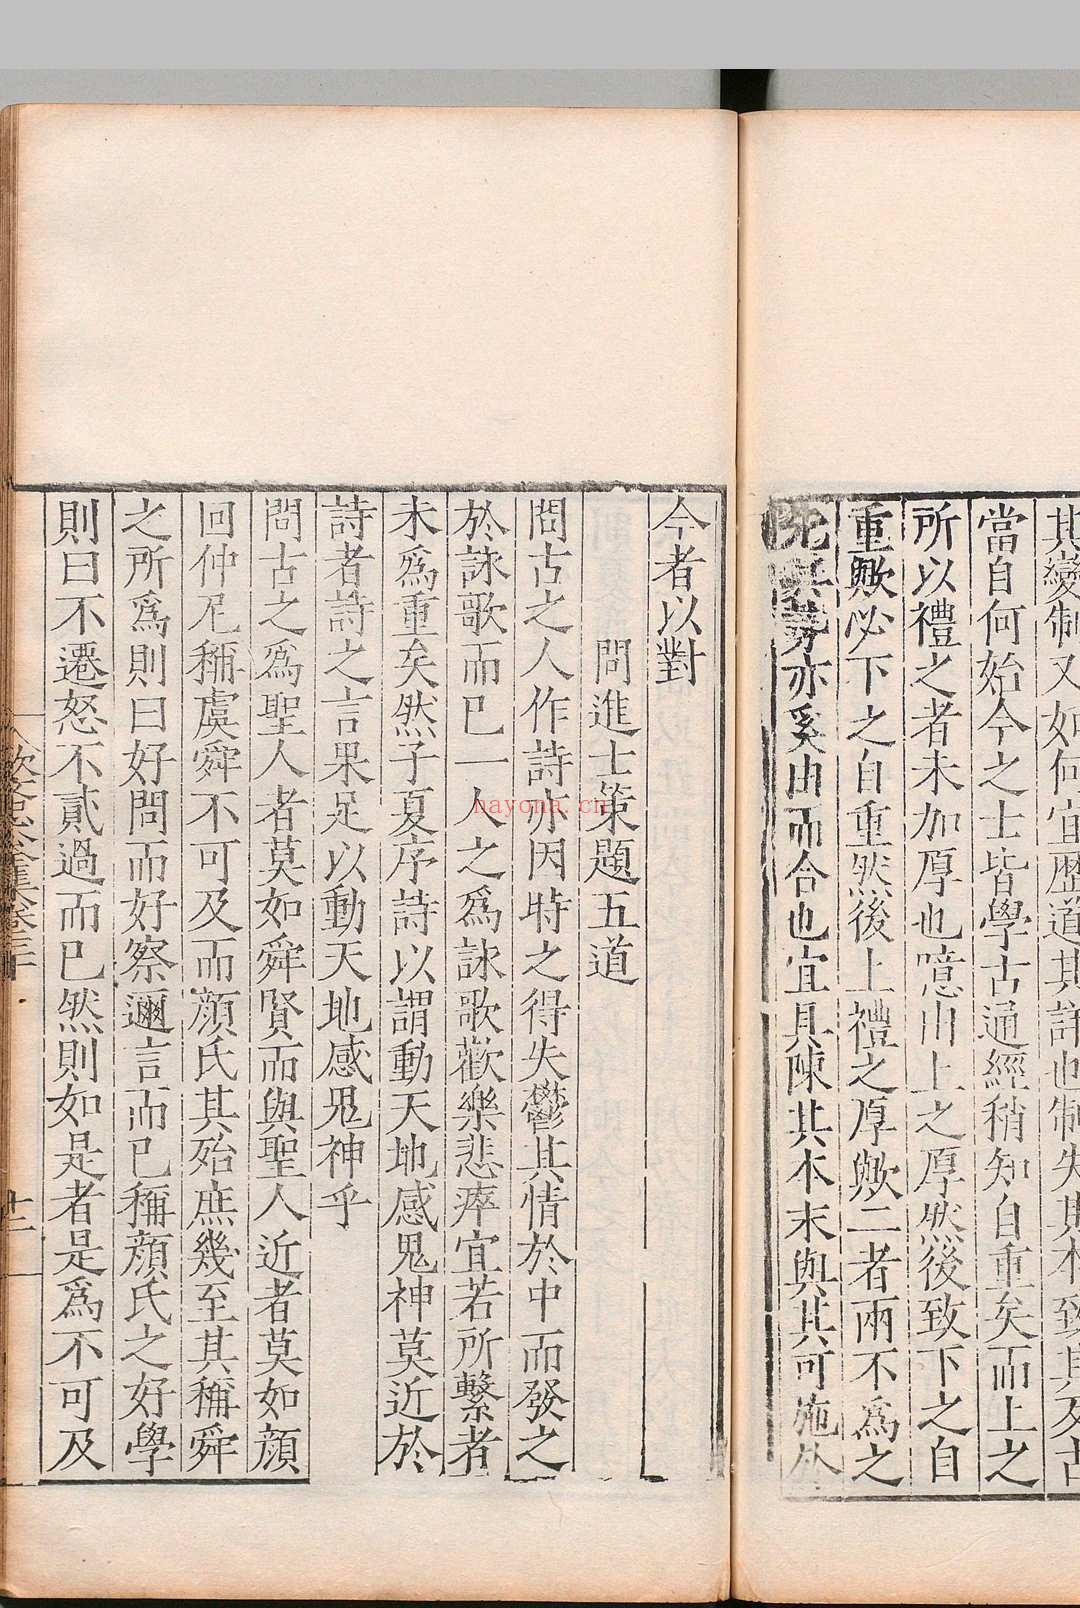 其變制又如何宜歷道其詳也制失其本致其及古
當自何始今之士皆學古通經稍知自重矣而上之
所以禮之者未加厚也噫由上之厚然後致下之自
重歟必下之自重然後上禮之厚歟二者兩不為之
亦奚由而合也宜具陳其本末與其可施於
今者以對
問進士策題五道
問古之人作詩亦因時之得失鬱其情於中而發之
於詠歌而已一人之為詠歌歡樂悲瘁宜若所繫者
未為重矣然子夏序詩以謂動天地感鬼神莫近於
詩者詩之言果足以動天地感鬼神乎
問古之為聖人者莫如舜賢而與聖人近者莫如顏
回仲尼稱虞舜不可及而顏氏其殆庶幾至其稱舜
之所為則曰好問而好察邇言而已稱顏氏之好學
則曰不遷怒不貳過而已然則如是者是為不可及
歐文忠公集卷三十
十二
nayona.cn